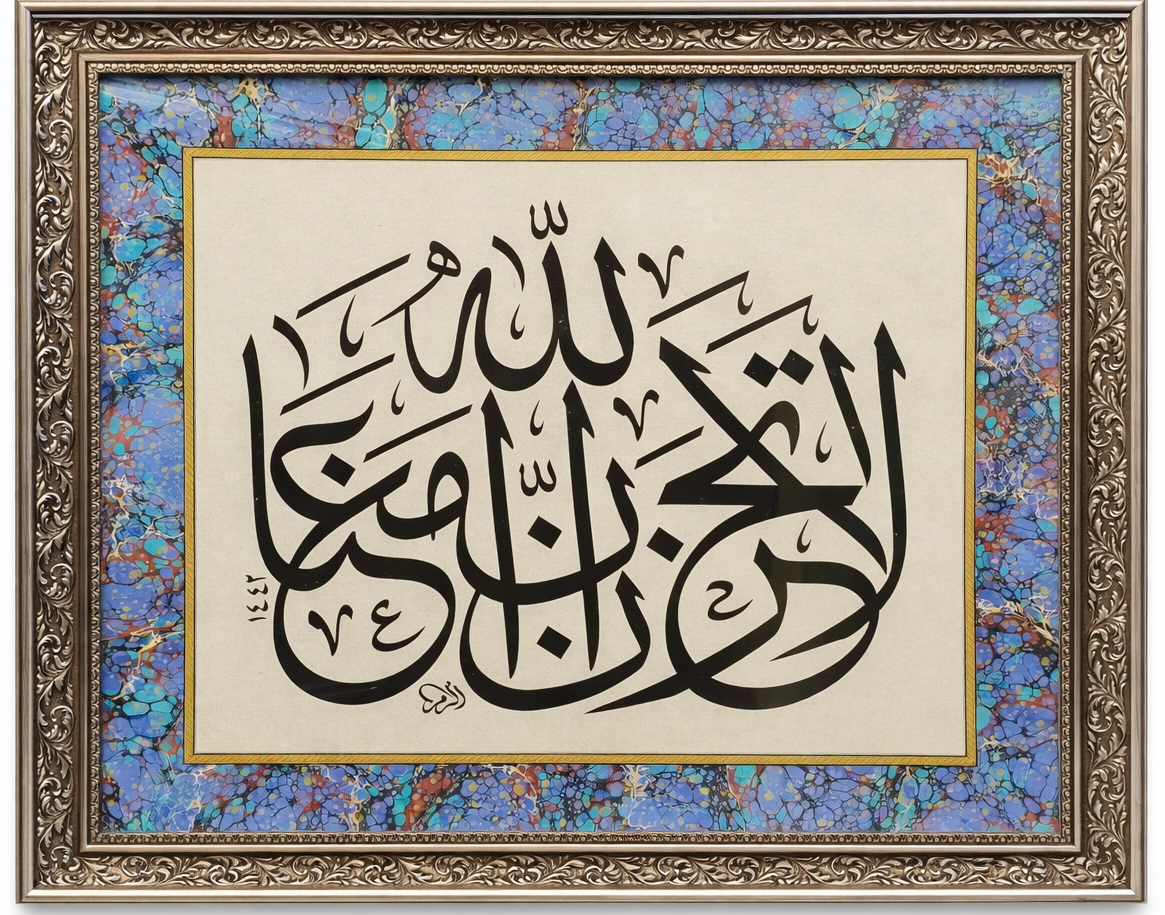 لا تحزن إن الله معنا
١٤٤٢